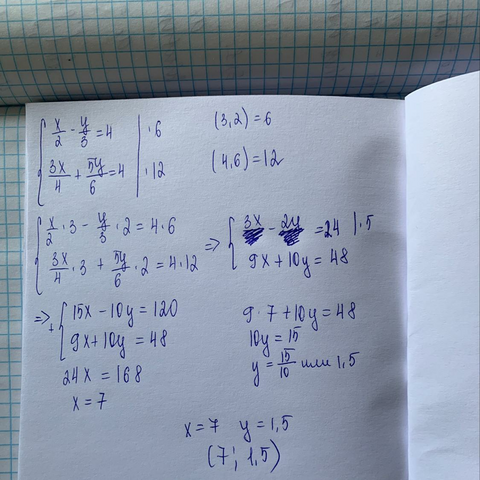 x/2 - y/3 = 4 | ·6 (3,2) = 6
3x/4 + 5y/6 = 4 | ·12 (4,6) = 12
x/2 · 3 - y/3 · 2 = 4·6 => 3x - 2y = 24 | ·5
3x/4 · 3 + 5y/6 · 2 = 4·12 9x + 10y = 48
=> + 15x - 10y = 120
9x + 10y = 48
24x = 168
x = 7
9 · 7 + 10y = 48
10y = 15
y = 15/10 или 1,5
x = 7 y = 1,5
(7; 1,5)